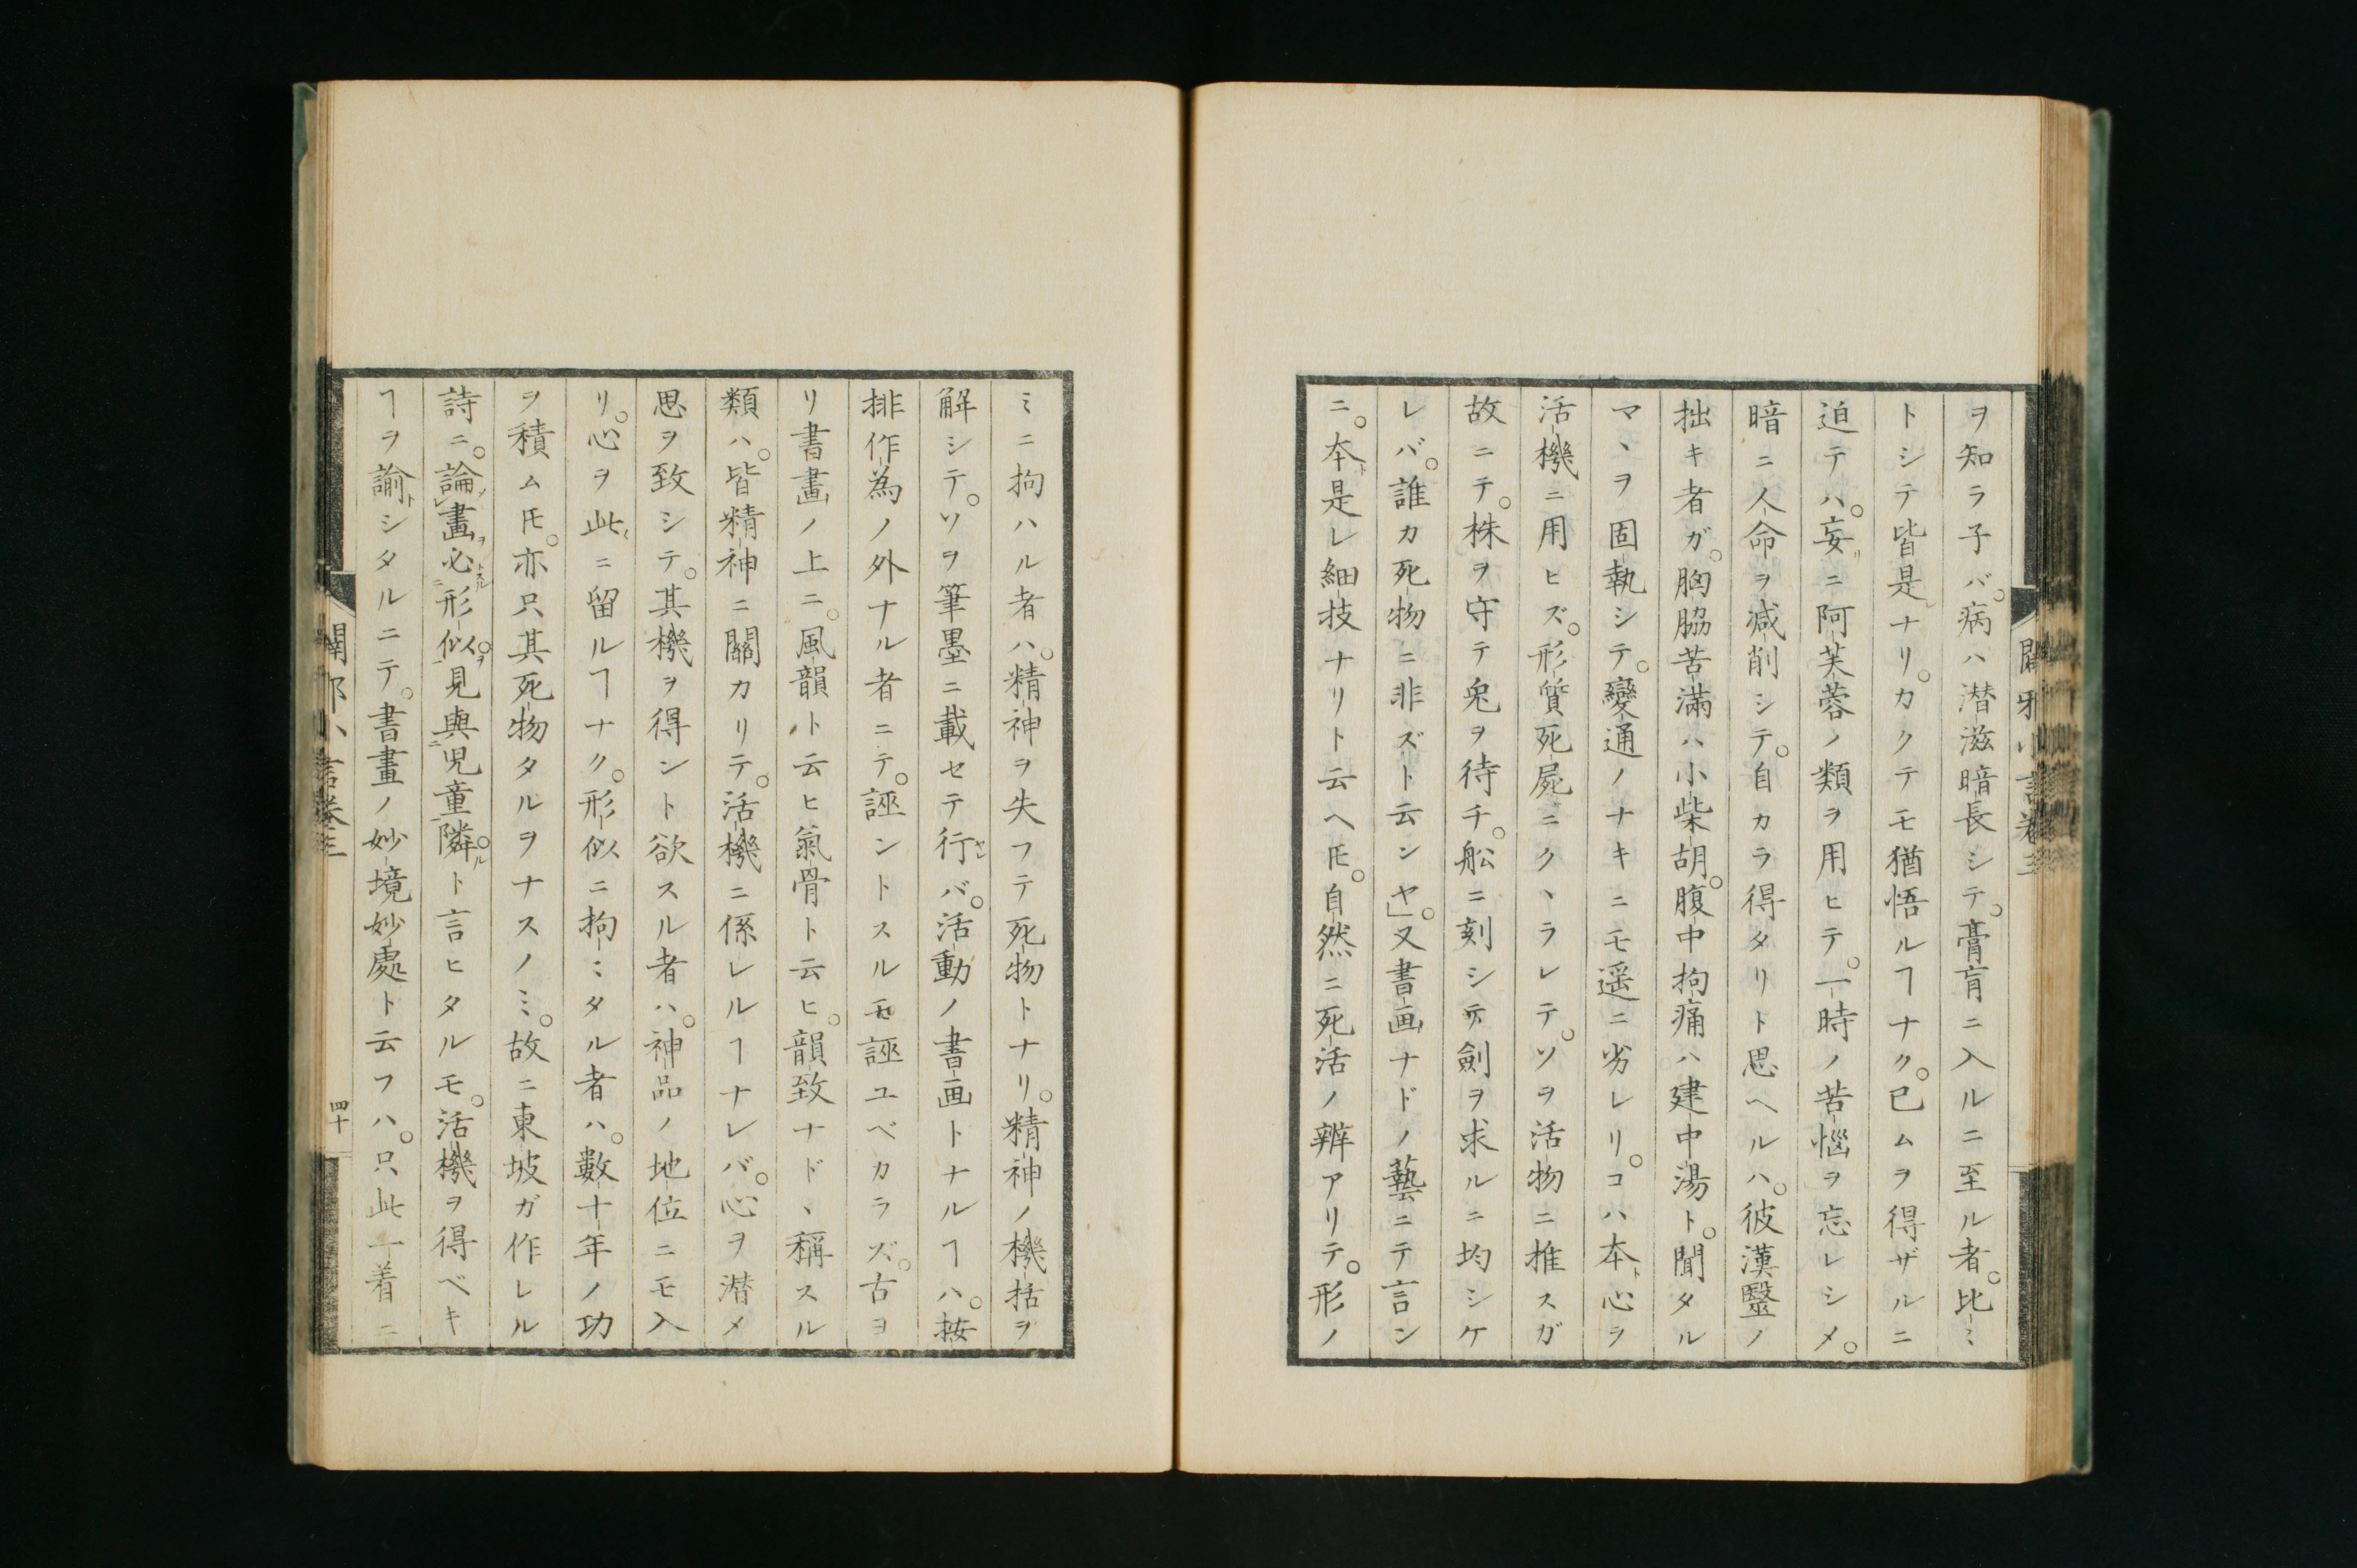 ヲ知ラ子バ。病ハ潜滋暗長シテ。膏肓ニ入ルニ至ル者。比〻
トシテ皆是ナリ。カクテモ猶悟ルヿナク。已ムヲ得ザルニ
迫テハ。妄リニ阿芙蓉ノ類ヲ用ヒテ。一時ノ苦惱ヲ忘レシメ。
暗ニ人命ヲ減削シテ。自カラ得タリト思ヘルハ。彼漢醫ノ
拙キ者ガ。胸脇苦滿ハ小柴胡。腹中拘痛ハ建中湯ト。聞タル
マヽヲ固執シテ。變通ノナキニモ遥ニ劣レリ。コハ本ト心ヲ
活機ニ用ヒズ。形質死屍ニクヽラレテ。ソヲ活物ニ推スガ
故ニテ。株ヲ守テ兎ヲ待チ。舩ニ刻シテ劍ヲ求ルニ均シケ
レバ。誰カ死物ニ非ズト云ンヤ」。又書画ナドノ藝ニテ言ン
ニ。本ト是レ細技ナリト云ヘ𪜈。自然ニ死活ノ辨アリテ。形ノ
ミニ拘ハル者ハ。精神ヲ失フテ死物トナリ。精神ノ機括ヲ
解シテ。ソヲ筆墨ニ載セテ行ヤレバ。活動ノ書画トナルヿハ。按
排作為ノ外ナル者ニテ。誣ントスル𪜈誣ユベカラズ。古ヨ
リ書畫ノ上ニ。風韻ト云ヒ氣骨ト云ヒ。韻致ナドヽ稱スル
類ハ。皆精神ニ關カリテ。活機ニ係レルヿナレバ。心ヲ潜メ
思ヲ致シテ。其機ヲ得ント欲スル者ハ。神品ノ地位ニモ入
リ。心ヲ此ニ留ルヿナク。形似ニ拘〻タル者ハ。數十年ノ功
ヲ積ム𪜈。亦只其死物タルヲナスノミ。故ニ東坡ガ作レル
詩ニ。論畫必形似。見與児童隣。ト言ヒタルモ。活機ヲ得ベキ
ヿヲ諭トシタルニテ。書畫ノ妙境妙處ト云フハ。只此一着ニ
四十